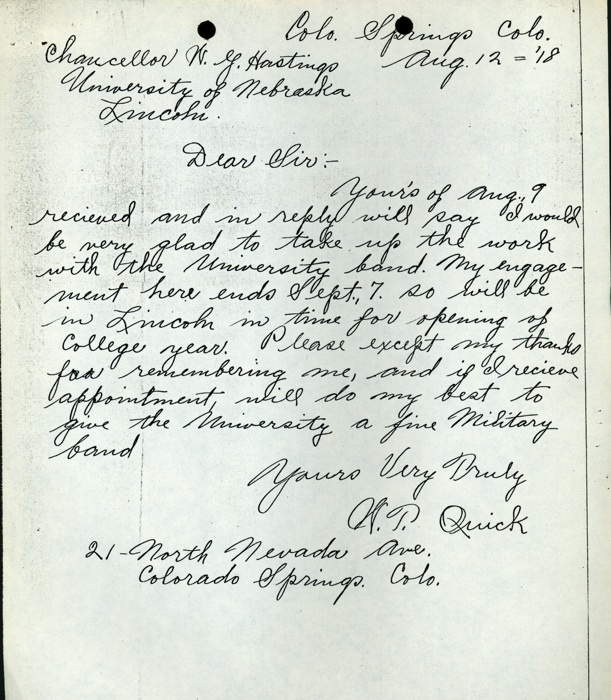 Colo. Springs Colo.
Chancellor W. G. Hastings Aug. 12 = '18
University of Nebraska
Lincoln.
Dear Sir:-
Your's of Aug. 9
recieved and in reply will say I would
be very glad to take up the work
with the University band. My engage-
ment here ends Sept., 7. so will be
in Lincoln in time for opening of
College year. Please except my thanks
for remembering me, and if I recieve
appointment will do my best to
give the University a fine Military
band
Yours Very Truly
W. T. Quick
21-North Nevada Ave.
Colorado Springs. Colo.